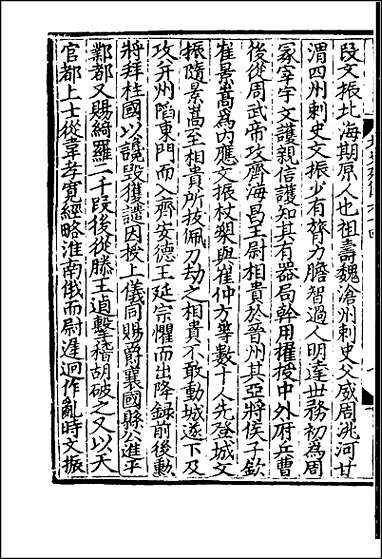 段文振北海期原人也祖壽魏滄州刺史父威周洮河甘
渭四州刺史文振少有膂力膽智過人明達世務初為周
冢宰宇文護親信護知其有器局幹用擢授中外府兵曹
後從周武帝攻齊海昌王尉相貴於晉州其亞將侯子欽
崔景嵩為内應文振杖槊與崔仲方等數十人先登城文
振隨景嵩至相貴所拔佩刀劫之相貴不敢動城遂下及
攻并州陷東門而入齊安德王延宗懼而出降録前後勳
將拜柱國以讒毀獲譴因授上儀同賜爵襄國縣公進平
鄴都又賜綺羅二千段後從滕王逌擊稽胡破之又以天
官都上士從韋孝寛經略淮南俄而尉遲迥作亂時文振